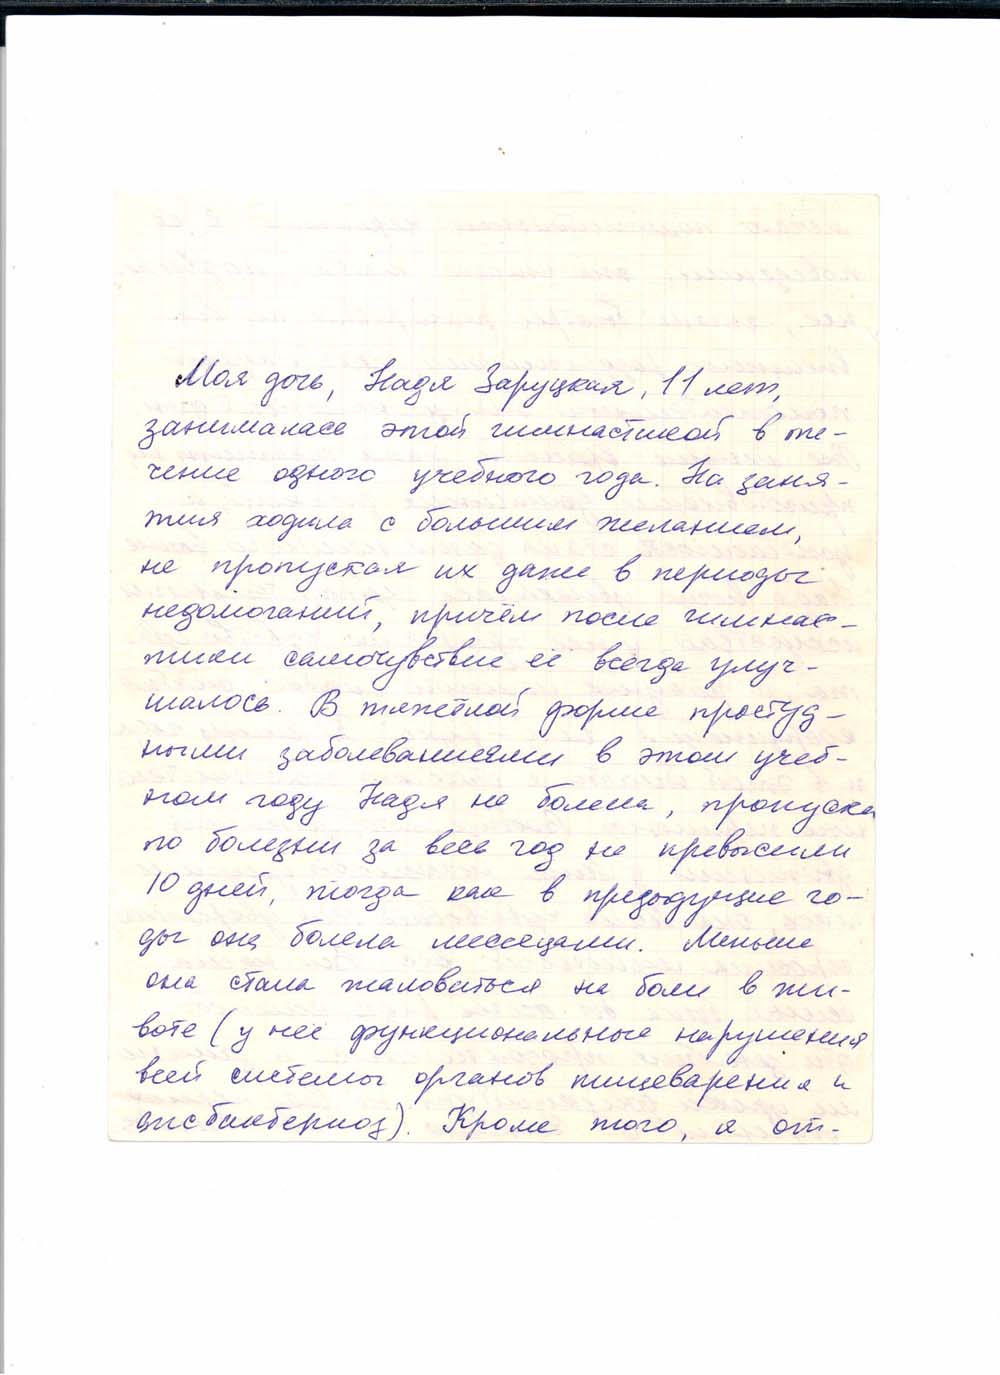 Моя дочь, Надя Заруцкая, 11 лет,
занималась этой гимнастикой в те-
чение одного учебного года. На заня-
тия ходила с большим желанием,
не пропуская их даже в периоды
недомоганий, причём после гимнас-
тики самочувствие её всегда улуч-
шалось. В тяжёлой форме простуд-
ными заболеваниями в этом учеб-
ном году Надя не болела, пропуски
по болезни за весь год не превысили
10 дней, тогда как в предыдущие го-
ды она болела месяцами. Меньше
она стала жаловаться на боли в жи-
воте (у неё функциональные нарушения
всей системы органов пищеварения и
дисбактериоз). Кроме того, я от-